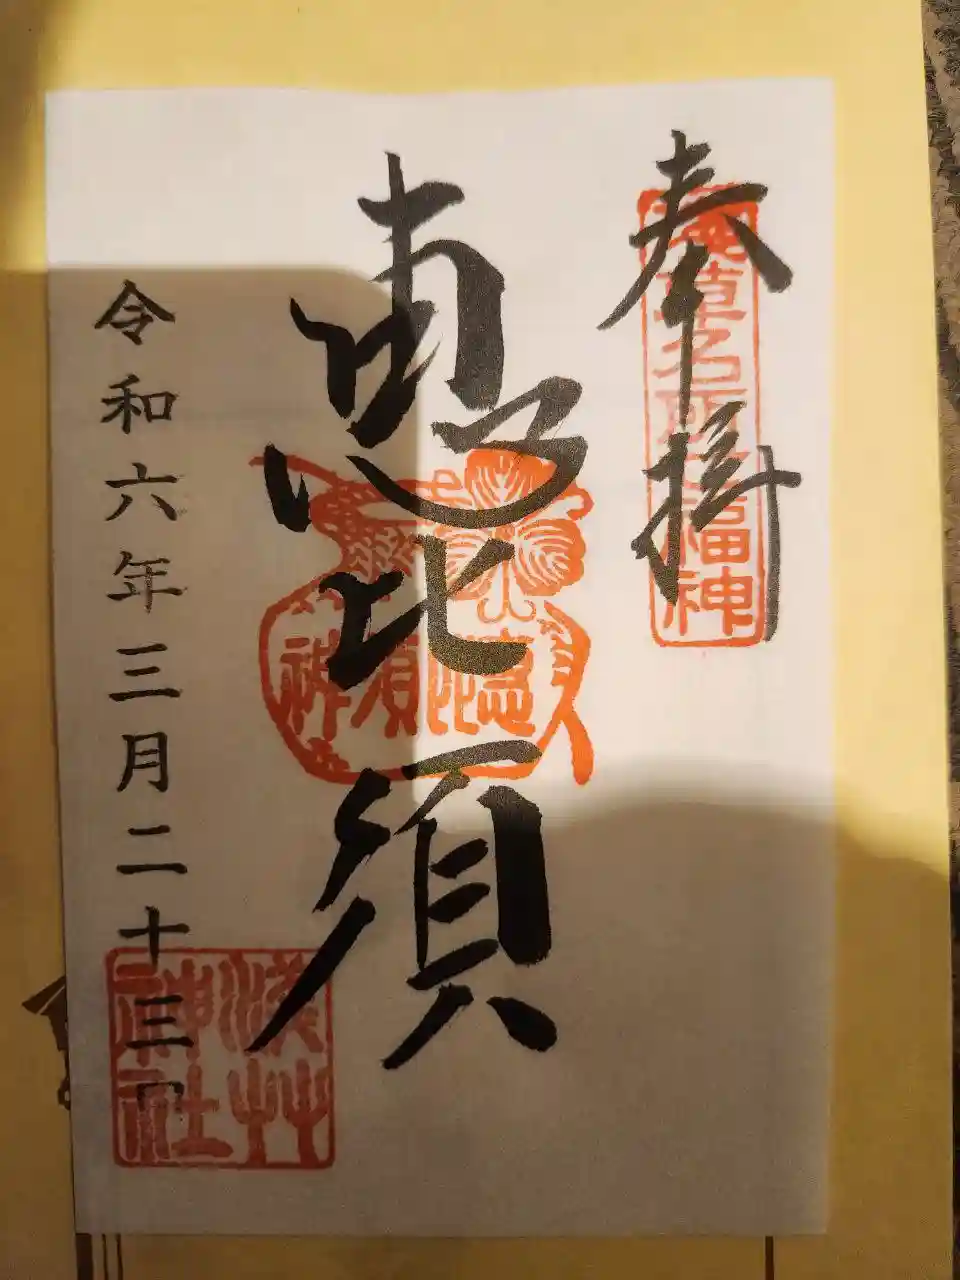 奉拝
浅草名所七福神
恵比須
恵比須神
令和六年三月二十三日
浅草神社